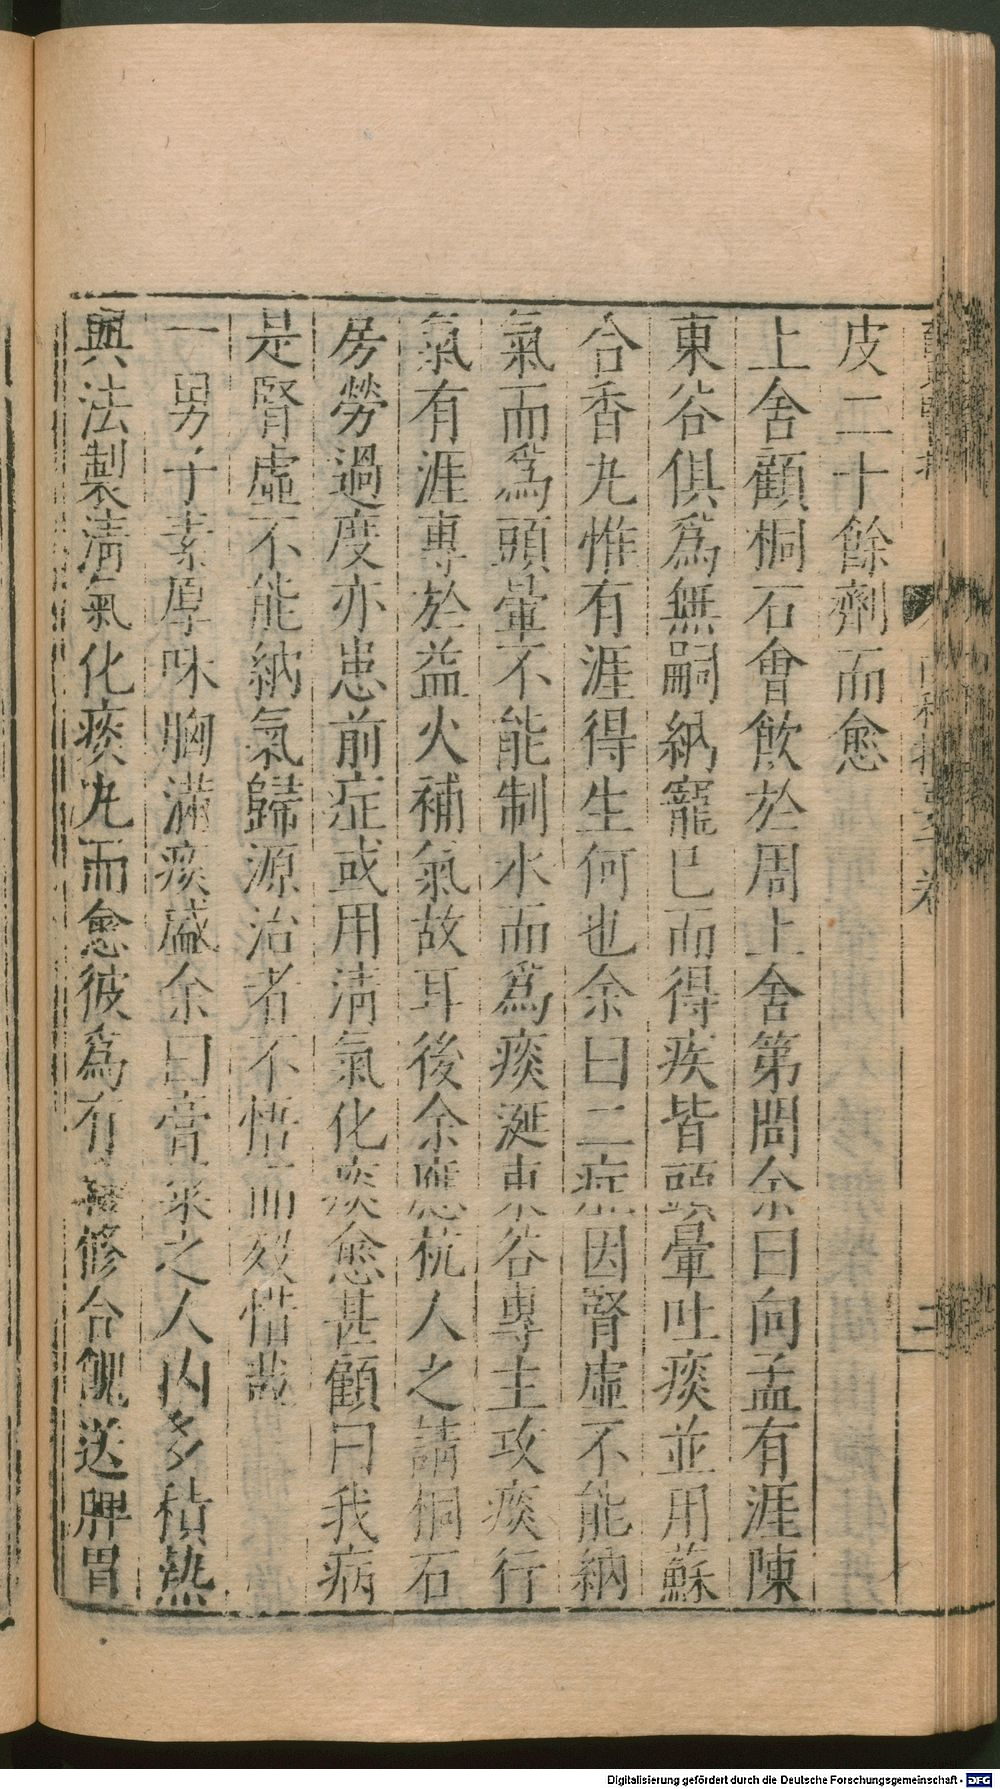 皮二十餘劑而愈
上舍顧桐石會飲於周上舍第問余曰向孟有涯陳
東谷俱爲無嗣納寵已而得疾皆頭暈吐痰並用蘇
合香丸惟有涯得生何也余曰二症因腎虛不能納
氣而爲頭暈不能制水而爲痰涎東谷專主攻痰行
氣有涯專於益火補氣故耳後余應杭人之請桐石
房勞過度亦患前症或用清氣化痰愈甚顧曰我病
是腎虛不能納氣歸源治者不悟而歿惜哉
一男子素厚味胸滿痰盛余曰膏粱之人內多積熱
與法製清氣化痰丸而愈彼爲有修合餽送脾胃
二
Digitalisierung gefördert durch die Deutsche Forschungsgemeinschaft - DFG